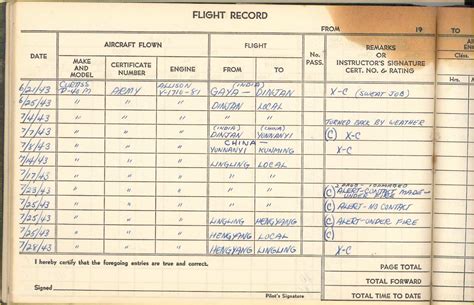 FLIGHT RECORD
FROM 19 TO
DATE AIRCRAFT FLOWN FLIGHT No. PASS. REMARKS OR INSTRUCTOR'S SIGNATURE CERT. NO. & RATING
MAKE AND MODEL CERTIFICATE NUMBER ENGINE FROM TO Hrs.
6/21/43 CURTISS P-40M ARMY ALLISON V-1710-81 (INDIA) GAYA – DINJAN X-C (SWEAT JOB)
6/25/43 " " " DINJAN LOCAL
7/4/43 " " " " " TURNED BACK BY WEATHER
7/4/43 " " " (INDIA) DINJAN (CHINA) YUNNANYI (C) X-C
7/7/43 " " " – CHINA – YUNNANYI KUNMING X-C
7/14/43 " " " LINGLING LOCAL
7/17/43 " " " " "
7/23/43 " " " " " (C) ALERT-CONTACT MADE- UNDER FIRE
7/25/43 " " " " " (C) ALERT-NO CONTACT
7/25/43 " " " LINGLING HENGYANG (C) ALERT-UNDER FIRE
7/25/43 " " " HENGYANG LOCAL (C) " "
7/28/43 " " " HENGYANG LINGLING X-C
I hereby certify that the foregoing entries are true and correct.
PAGE TOTAL
TOTAL FORWARD
Signed Pilot's Signature TOTAL TIME TO DATE